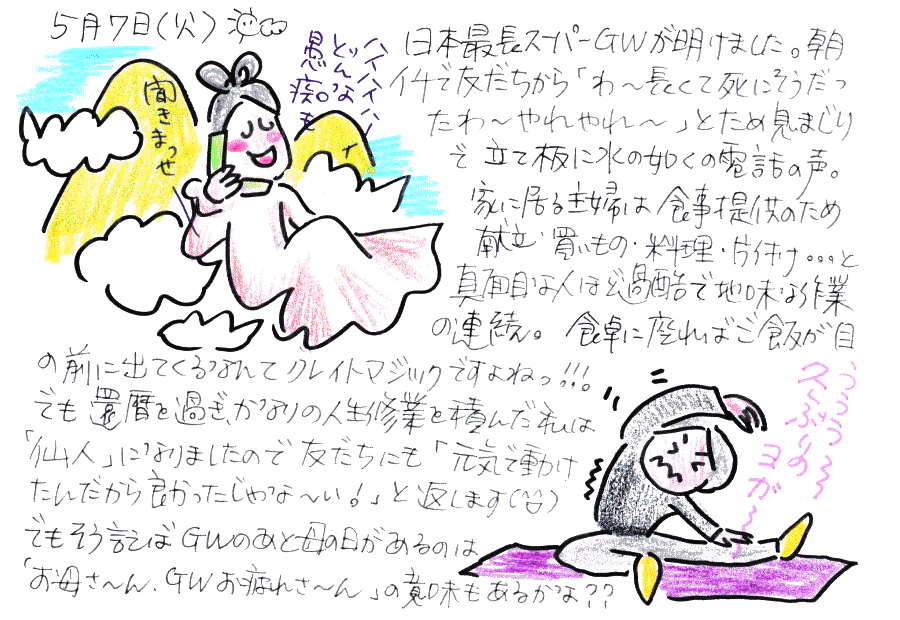 5月7日(火)
ハイハイハイハイ
どんな
愚痴も
聞きまっせ
日本最長スーパーGWが明けました。朝
イチで友だちから「わ〜長くて死にそうだっ
たわ〜やれやれ〜」とため息まじり
で立て板に水の如くの電話の声。
家に居る主婦は食事提供のため
献立・買いもの・料理・片付け…と
真面目な人ほど過酷で地味な作業
の連続。食卓に座ればご飯が目
の前に出てくるなんてグレイトマジックですよねっ!!!。
でも還暦を過ぎ、かなりの人生修業を積んだ私は
「仙人」になりましたので友だちにも「元気で動け
たんだから良かったじゃな〜い!」と返します
でもそう言えばGWのあと母の日があるのは
「お母さ〜ん、GWお疲れさ〜ん」の意味もあるかな??
うううう〜
久しぶりの
ヨガ〜